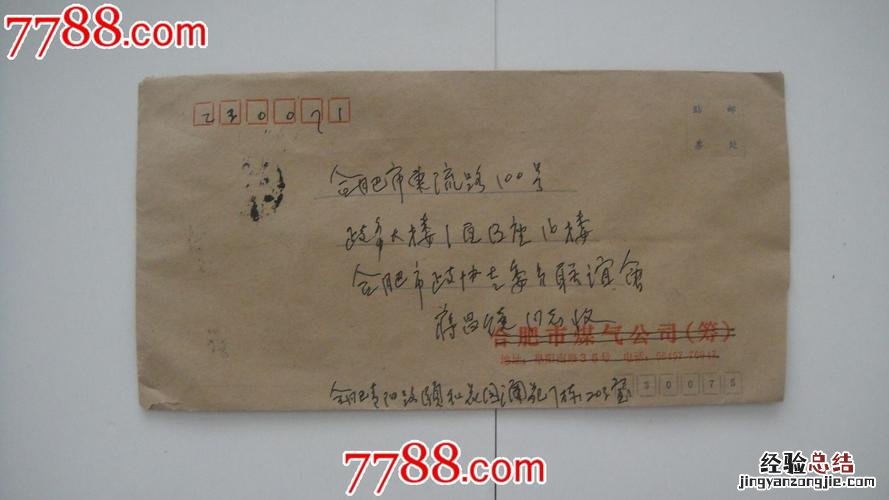 7788.com
230071
贴 邮
票 处
合肥市东流路100号
政务大楼1区B座16楼
合肥市政协老委员联谊会
蒋昌 同志收
合肥市煤气公司(筹)
地址:阜阳南路36号 电话:
合肥青阳路颐和花园澜苑7栋 室
30075
7788.com
经验总结
jingyanzongjie.com